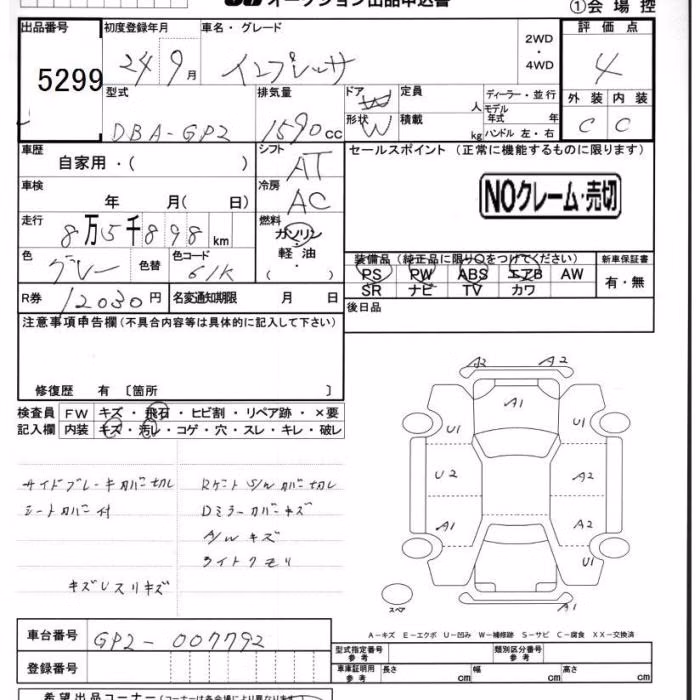 オークション出品申込書
①会場控
出品番号
5299
初度登録年月
24 9月
車名・グレード
インプレッサ
2WD
・
4WD
評価点
4
外装 内装
C C
型式
DBA-GP2
排気量
1590cc
ドア W
形状 W
定員 人
積載 kg
ディーラー・並行
モデル年式 年
ハンドル 左・右
車歴
自家用・( )
シフト
AT
セールスポイント (正常に機能するものに限ります)
NOクレーム・売切
車検
年 月( 日)
冷房
AC
走行
8万5千898km
燃料
ガソリン
・
軽油
・
( )
色
グレー
色替
色コード
61K
装備品(純正品に限り○をつけてください)
PS PW ABS エアB AW
SR ナビ TV カワ
新車保証書
有・無
R券 12030円
名変通知期限 月 日
後日品
注意事項申告欄(不具合内容等は具体的に記入して下さい)
修復歴 有 〔箇所 〕
検査員記入欄
FW キズ・飛石・ヒビ割・リペア跡・×要
内装 キズ・汚レ・コゲ・穴・スレ・キレ・破レ
サイドブレーキカバー切レ
シートカバー付
キズUスリキズ
Rゲート S/W カバー切レ
Dミラーカバーキズ
A/W キズ
ライトクモリ
A2 A2
A1
U1 U1
U2 A2
A1 A2
U1
A1
スペア
A-キズ E-エクボ U-凹み W-補修跡 S-サビ C-腐食 XX-交換済
車台番号
GP2-007792
登録番号
型式指定番号
参考
類別区分番号
参考
車庫証明用
参考
長さ cm
幅 cm
高さ cm
希望出品コーナー